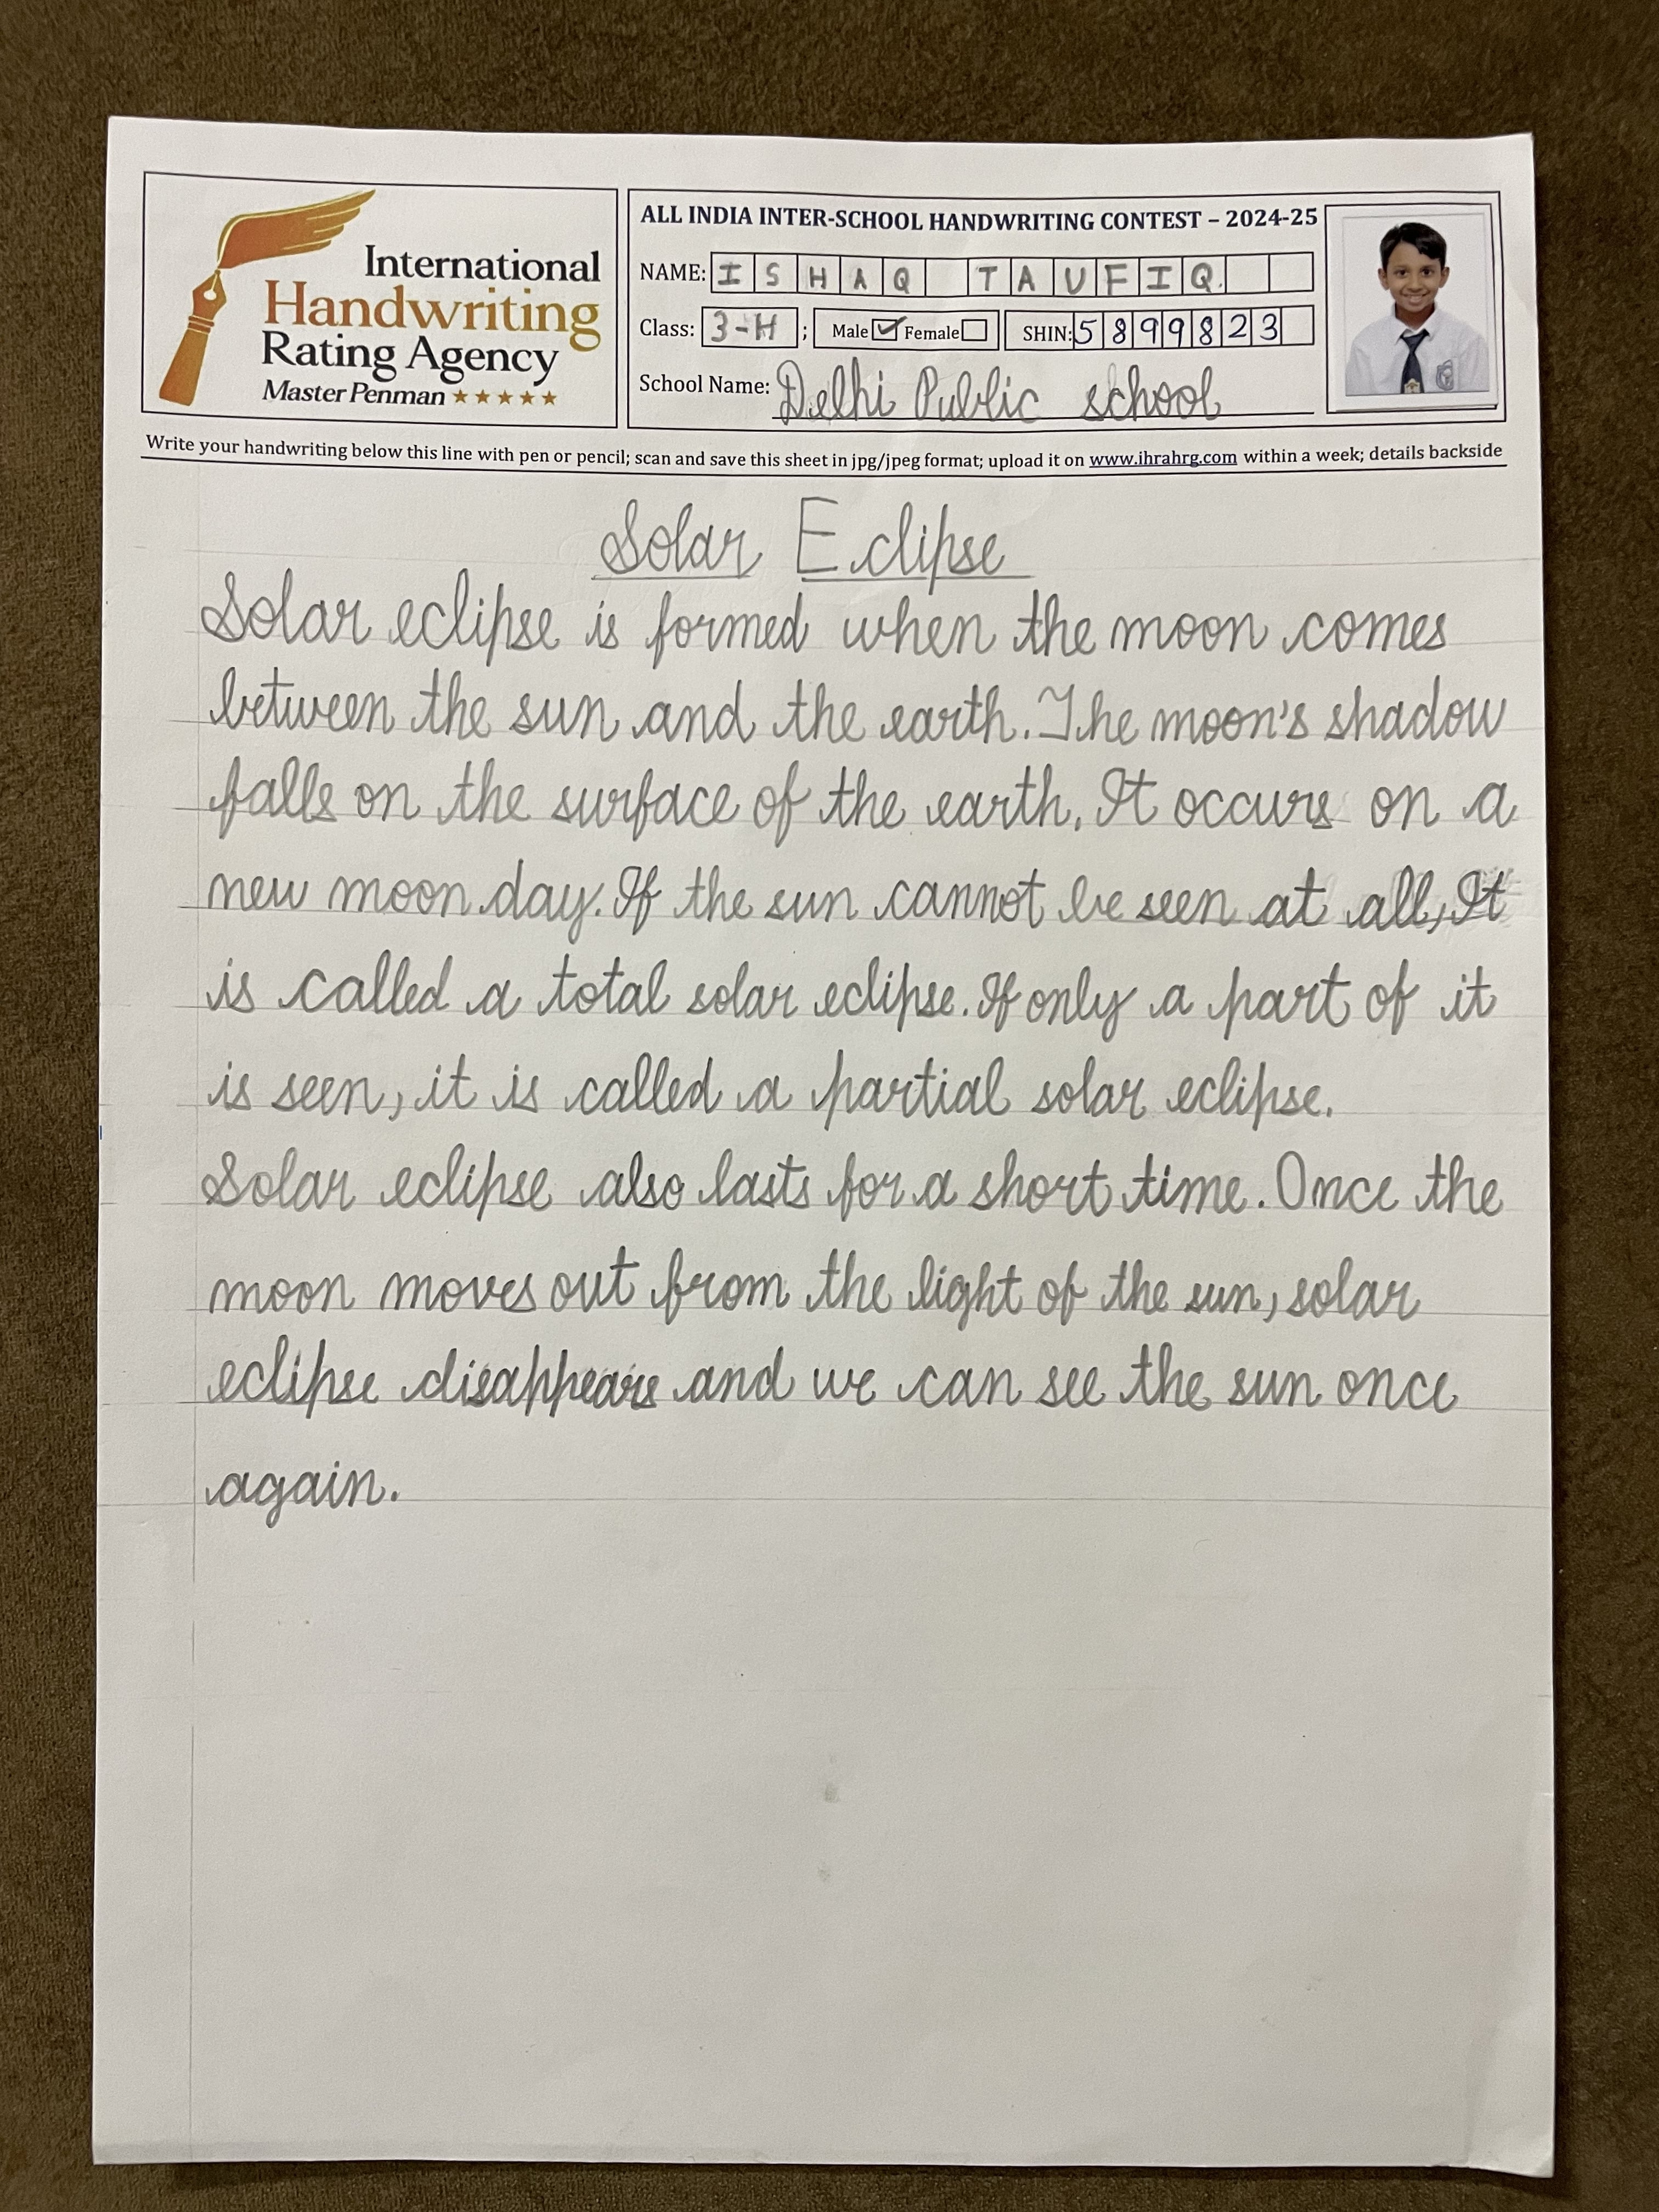 International
Handwriting
Rating Agency
Master Penman ★★★★★
ALL INDIA INTER-SCHOOL HANDWRITING CONTEST – 2024-25
NAME: ISHAQ TAUFIQ.
Class: 3-H ; Male ☑ Female ☐ SHIN: 5899823
School Name: Delhi Public school
Write your handwriting below this line with pen or pencil; scan and save this sheet in jpg/jpeg format; upload it on www.ihrahrg.com within a week; details backside
Solar Eclipse
Solar eclipse is formed when the moon comes
between the sun and the earth. The moon's shadow
falls on the surface of the earth. It occurs on a
new moon day. If the sun cannot be seen at all, It
is called a total solar eclipse. If only a part of it
is seen, it is called a partial solar eclipse.
Solar eclipse also lasts for a short time. Once the
moon moves out from the light of the sun, solar
eclipse disappears and we can see the sun once
again.